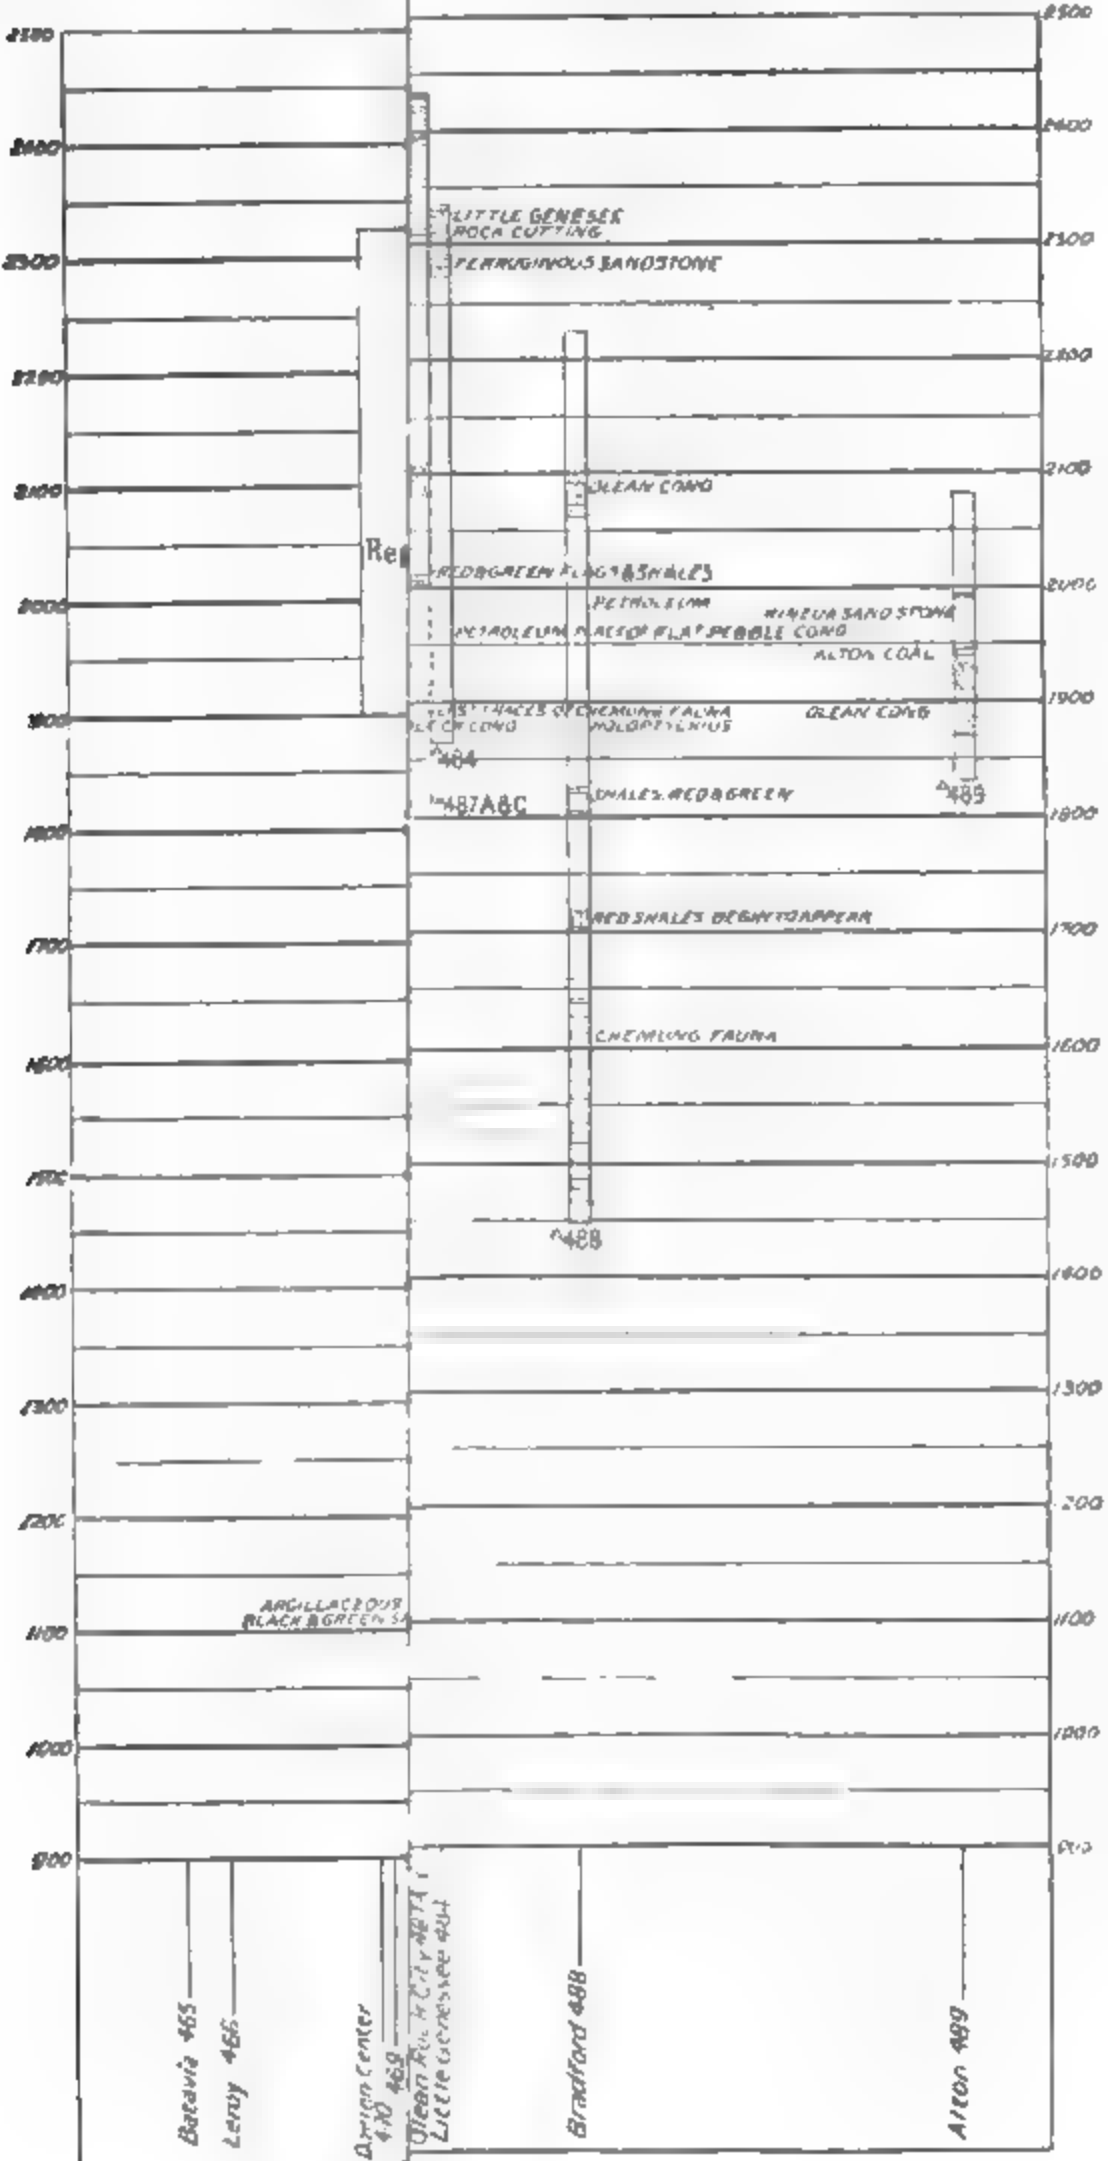 2500
2400
2300
2200
2100
2000
1900
1800
1700
1600
1500
1400
1300
1200
1100
1000
900
2500
2400
2300
2200
2100
2000
1900
1800
1700
1600
1500
1400
1300
200
1100
1000
LITTLE GENESEE
ROCK CUTTING
FERRUGINOUS SANDSTONE
OLEAN CONG
Re
RED&GREEN FLAGS&SHALES
PETROLEUM
KINZUA SANDSTONE
PETROLEUM PLACE OF FLAT PEBBLE CONG
ALTON COAL
LAST TRACES OF CHEMUNG FAUNA
OLEAN CONG
CONG
HOLOPTYCHIUS
484
489
SHALES RED&GREEN
487A&C
RED SHALES BEGIN TO APPEAR
CHEMUNG FAUNA
488
ARGILLACEOUS
BLACK & GREEN
Batavia 465
Leroy 466
Darien Center
470
469
Olean Rock City
Little Genessee 484
Bradford 488
Alton 489